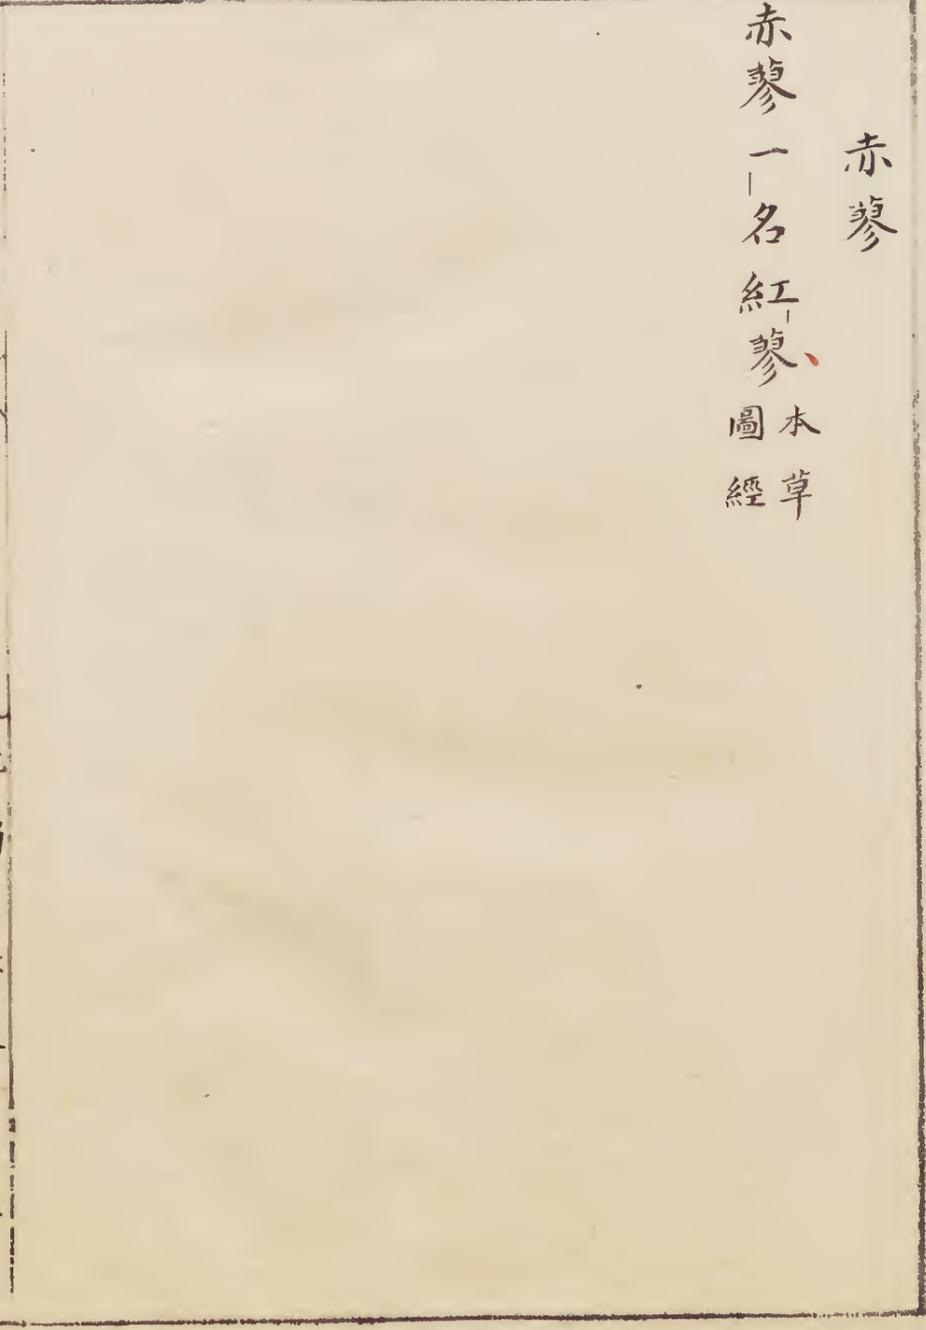 赤蓼
赤蓼一名紅蓼本草
圖經